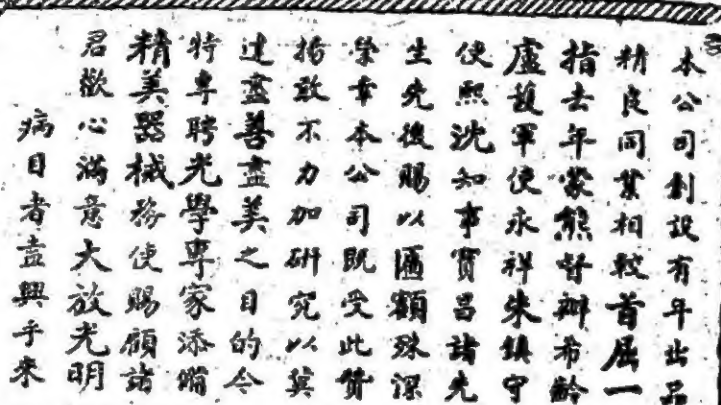 本公司創設有年出品
精良同業相較首屈一
指去年蒙熊督辦希齡
盧護軍使永祥朱鎮守
使熙沈知事寶昌諸先
生先後賜以匾額殊深
榮幸本公司既受此贊
揚敢不力加研究以冀
達盡善盡美之目的今
特專聘光學專家添備
精美器械務使賜顧諸
君歡心滿意大放光明
病目者盍興乎來